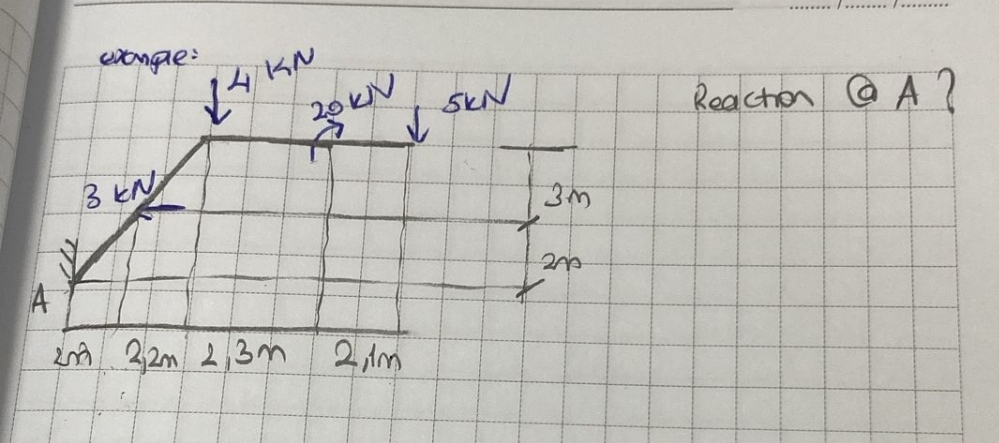 example:
4 KN
20 KN
5KN
Reaction @ A ?
3 KN
3m
2m
A
2m 2,2m 2,3m 2,1m